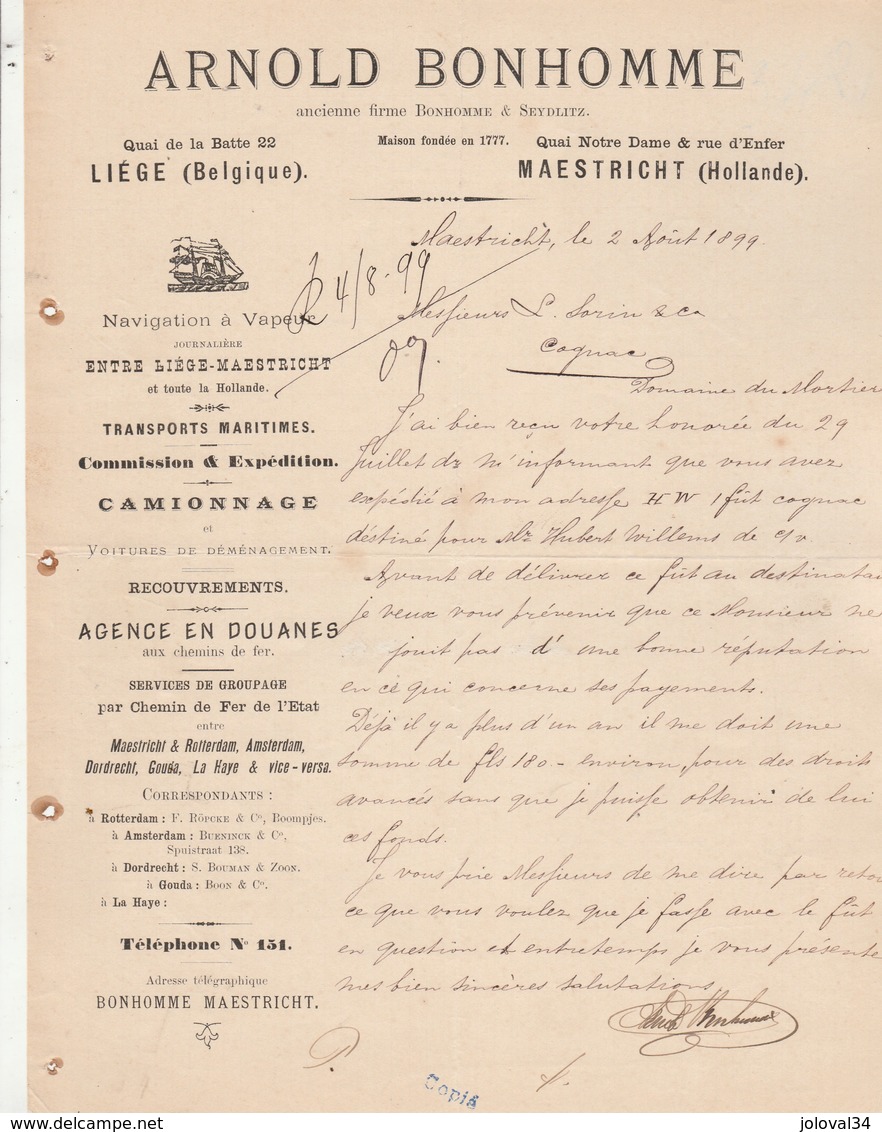 ARNOLD BONHOMME
ancienne firme BONHOMME & SEYDLITZ.
Quai de la Batte 22
LIÉGE (Belgique).
Maison fondée en 1777.
Quai Notre Dame & rue d'Enfer
MAESTRICHT (Hollande).
Maestricht, le 2 Août 1899.
4/8-99
Navigation à Vapeur
JOURNALIÈRE
ENTRE LIÉGE-MAESTRICHT
et toute la Hollande.
TRANSPORTS MARITIMES.
Commission & Expédition.
CAMIONNAGE
et
VOITURES DE DÉMÉNAGEMENT.
RECOUVREMENTS.
AGENCE EN DOUANES
aux chemins de fer.
SERVICES DE GROUPAGE
par Chemin de Fer de l'Etat
entre
Maestricht & Rotterdam, Amsterdam,
Dordrecht, Gouda, La Haye & vice-versa.
CORRESPONDANTS :
à Rotterdam : F. RÖPCKE & Co, Boompjes.
à Amsterdam : BUENINCK & Co,
Spuistraat 138.
à Dordrecht : S. BOUMAN & ZOON.
à Gouda : BOON & Co.
à La Haye :
Téléphone No 151.
Adresse télégraphique
BONHOMME MAESTRICHT.
Messieurs L. Sorin & Co
Cognac
Domaine du Mortier
J'ai bien reçu votre honorée du 29
Juillet dr m'informant que vous avez
expédié à mon adresse HW 1 fût cognac
déstiné pour Mr Hubert Willems de c/v.
Avant de délivrer ce fût au destinatai
je veux vous prévenir que ce Monsieur ne
jouit pas d'une bonne réputation
en ce qui concerne ses payements.
Déjà il y a plus d'un an il me doit une
somme de fls 180.- environ, pour des droits
avancés sans que je puisse obtenir de lui
ces fonds.
Je vous prie Messieurs de me dire par retou
ce que vous voulez que je fasse avec le fût
en question et entretemps je vous présente
mes bien sincères salutations
Arnold Bonhomme
Copié
delcampe.net
joloval34